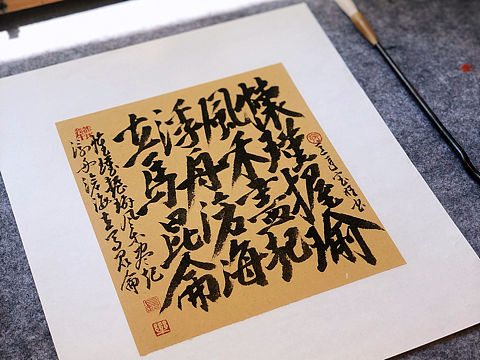 懷瑾握瑜
風禾盡起
浮舟滄海
立馬昆侖
懷瑾握瑜風禾盡起
浮舟滄海立馬昆侖